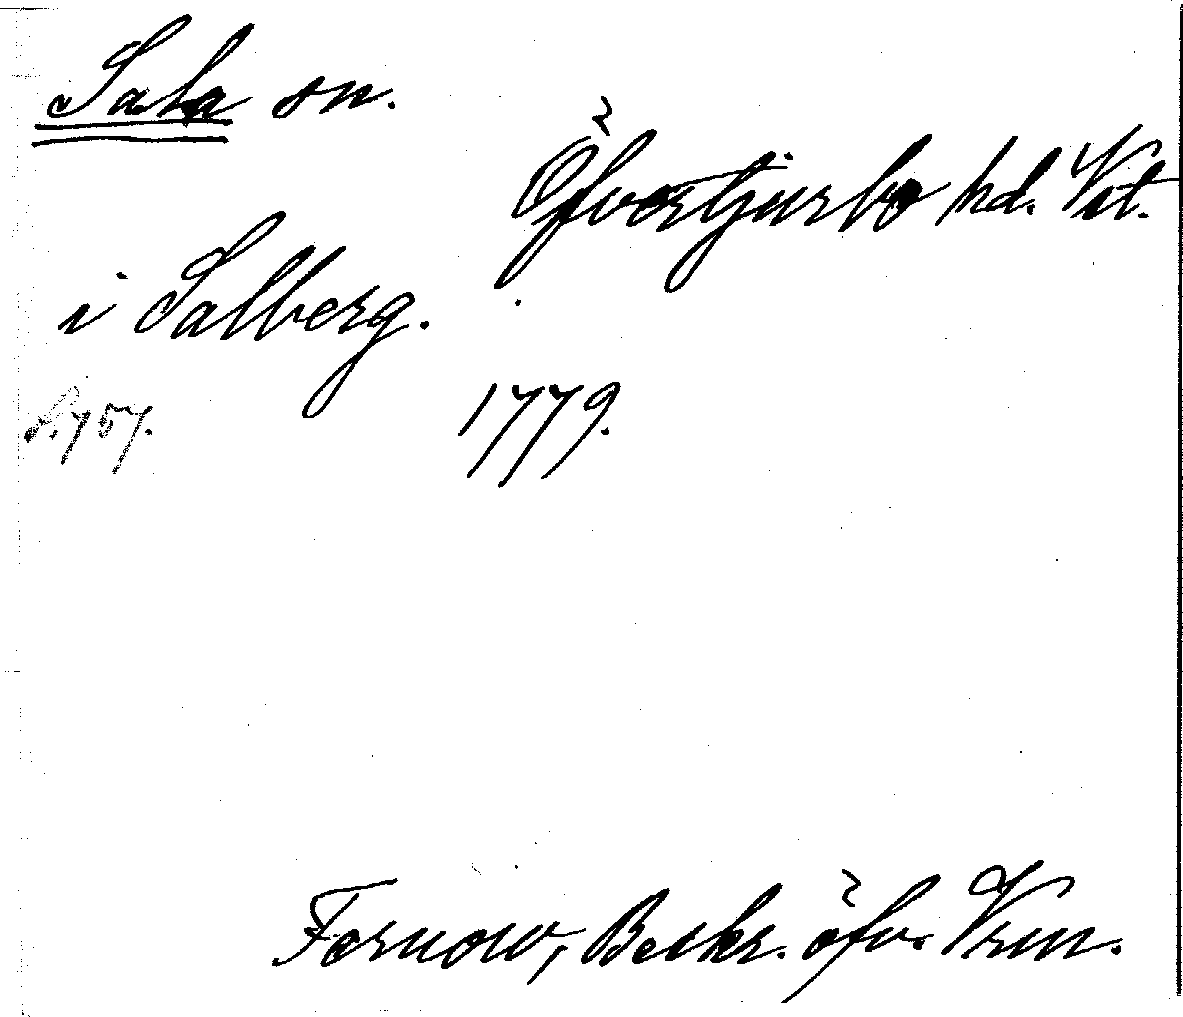 Sala sn.
Öfvertjurbo hd. Vstl.
i Salberg.
S. 757.
1779.
Fernow, Beskr. öfv. Vrm.